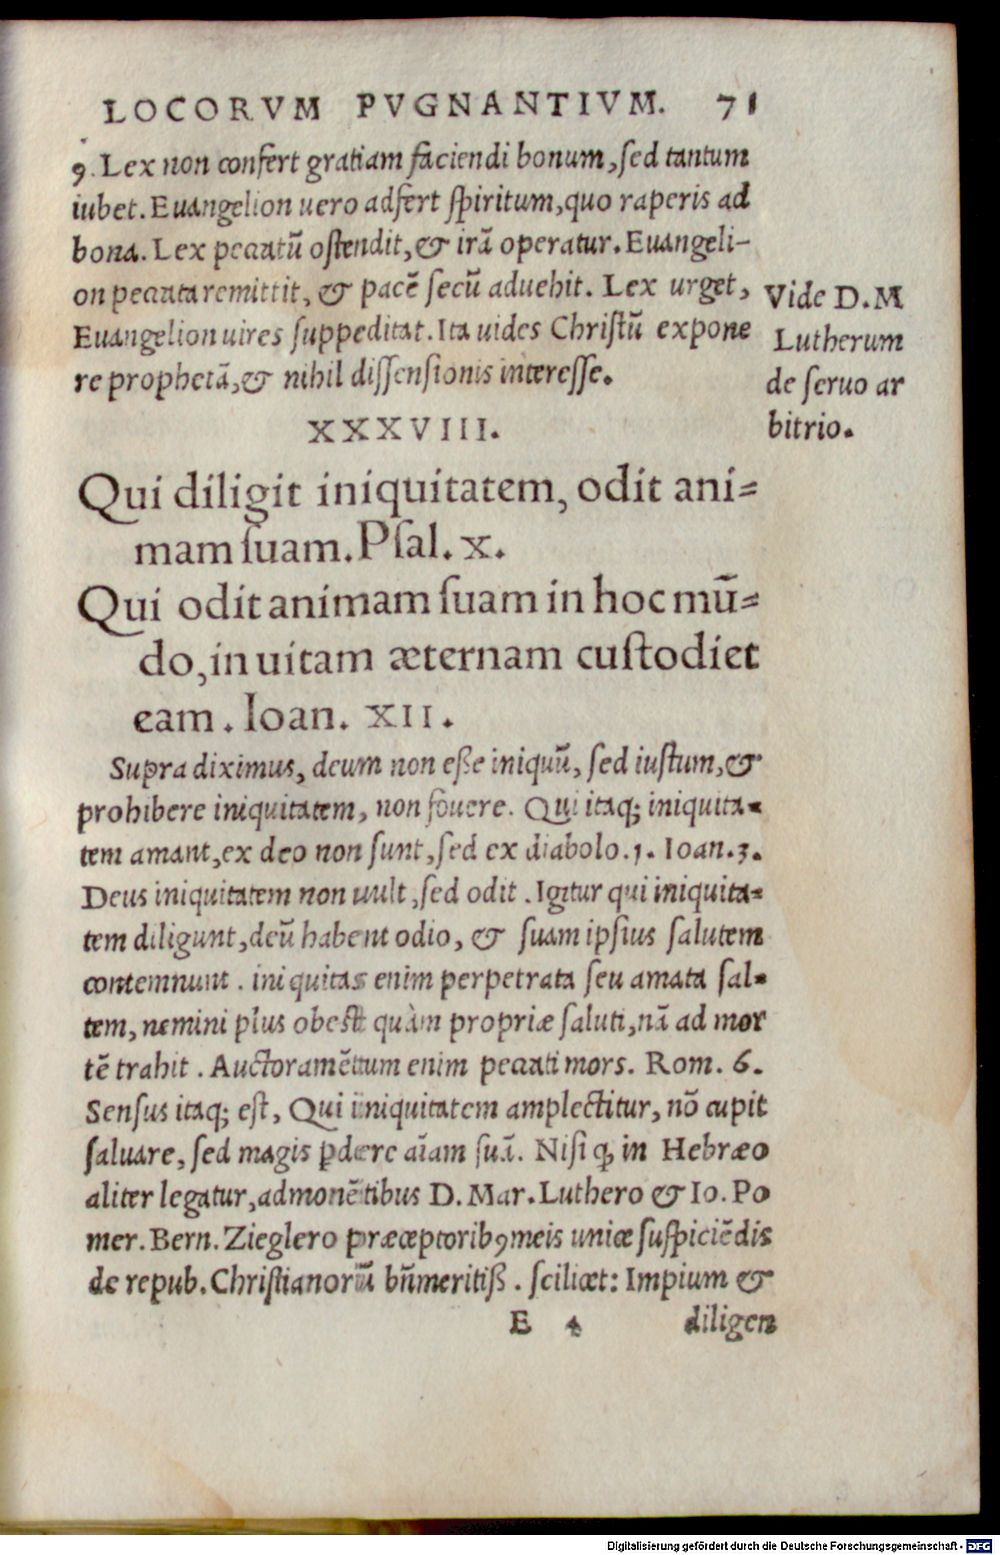 LOCORVM PVGNANTIVM. 71
9. Lex non confert gratiam faciendi bonum, sed tantum
iubet. Euangelion uero adfert spiritum, quo raperis ad
bona. Lex peccatū ostendit, & irā operatur. Euangeli-
on peccata remittit, & pacē secū aduehit. Lex urget,
Euangelion uires suppeditat. Ita uides Christū expone
re prophetā, & nihil dissensionis interesse.
Vide D. M
Lutherum
de seruo ar
bitrio.
XXXVIII.
Qui diligit iniquitatem, odit ani=
mam suam. Psal. x.
Qui odit animam suam in hoc mū=
do, in uitam æternam custodiet
eam. Ioan. XII.
Supra diximus, deum non eße iniquū, sed iustum, &
prohibere iniquitatem, non fouere. Qui itaq; iniquita=
tem amant, ex deo non sunt, sed ex diabolo. 1. Ioan. 3.
Deus iniquitatem non uult, sed odit. Igitur qui iniquita=
tem diligunt, deū habent odio, & suam ipsius salutem
contemnunt. iniquitas enim perpetrata seu amata sal=
tem, nemini plus obest quàm propriæ saluti, nā ad mor
tē trahit. Auctoramētum enim peccati mors. Rom. 6.
Sensus itaq; est, Qui iniquitatem amplectitur, nō cupit
saluare, sed magis ꝑdere aīam suā. Nisi ꝙ in Hebræo
aliter legatur, admonētibus D. Mar. Luthero & Io. Po
mer. Bern. Zieglero præceptoribꝰ meis unice suspiciēdis
de repub. Christianorū bn̄meritiß. scilicet: Impium &
E 4 diligen
Digitalisierung gefördert durch die Deutsche Forschungsgemeinschaft - DFG